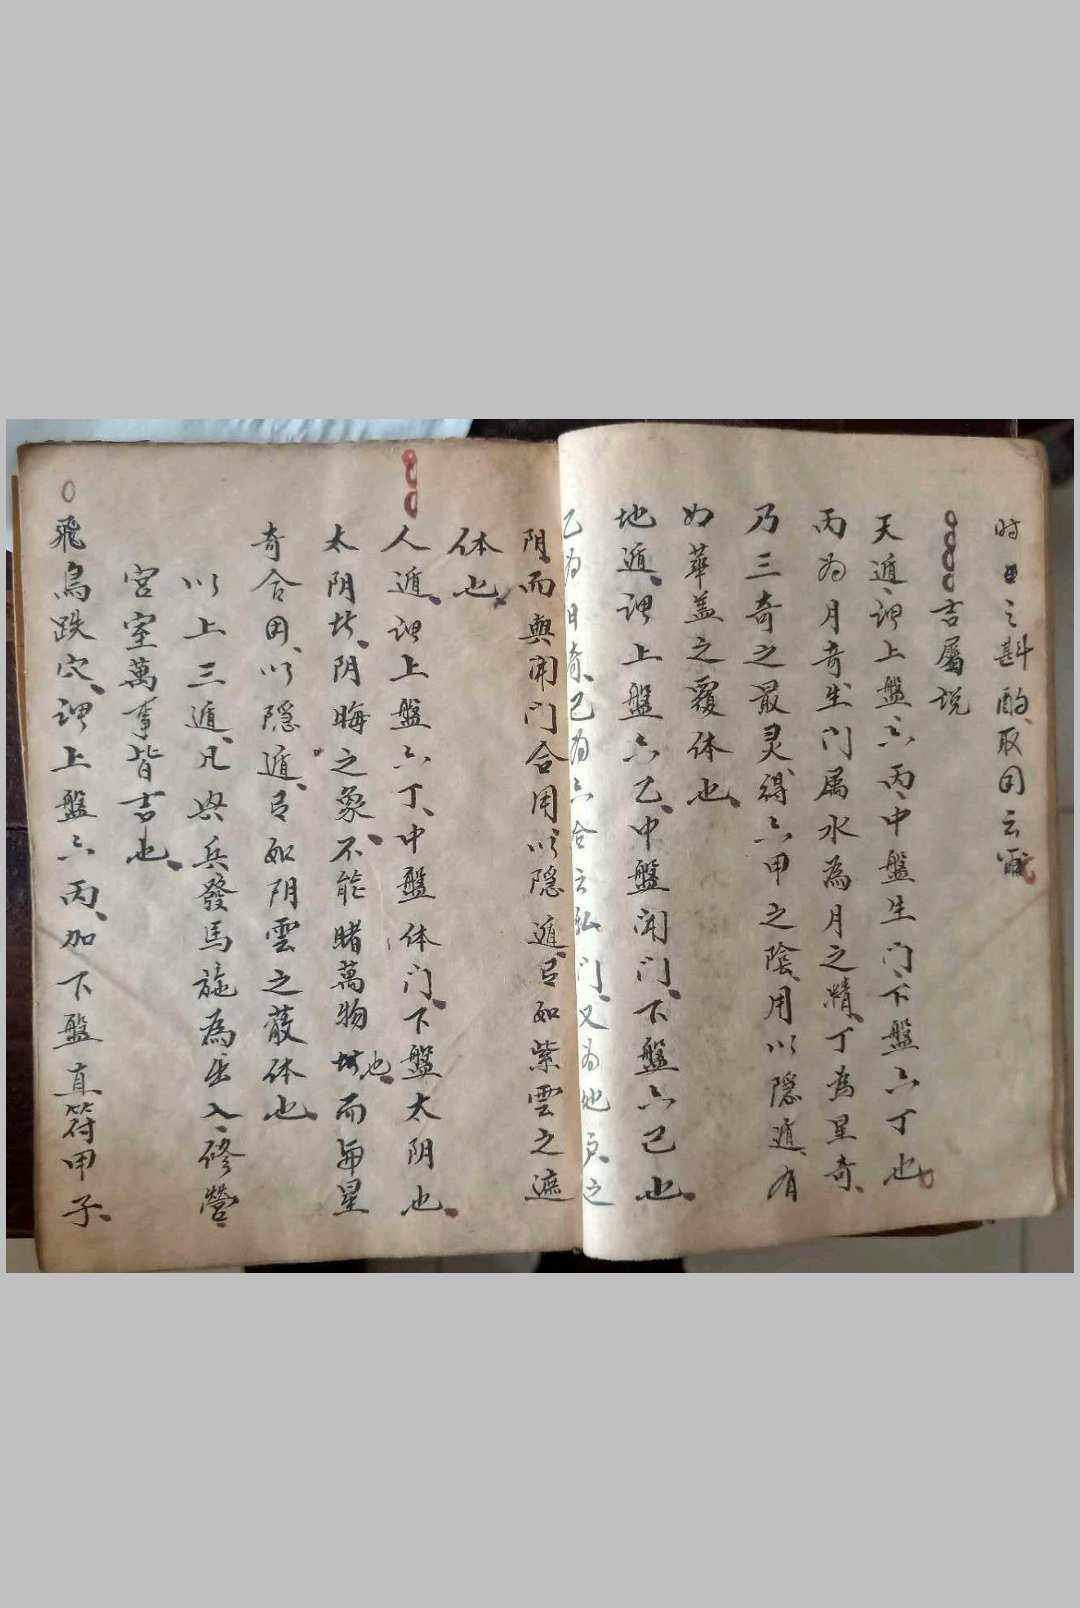 时日之斟酌、取用云爾
吉屬说
天遁、謂上盤六丙、中盤生门、下盤六丁也
丙為月奇、生门属水為月之精、丁為星奇、
乃三奇之最灵、得六甲之陰、用以隱遁、有
如華盖之覆体也、
地遁、謂上盤六乙、中盤開门、下盤六己也、
乙為日奇、己為六合云私门、又为地户、之
阴、而與開门合用、以隱遁、有如紫雲之遮
体也、
人遁、謂上盤六丁、中盤休门、下盤太阴也、
太阴、阴晦之象、不能睹萬物也、而星
奇合用、以隱遁、有如阴雲之蔽体也
以上三遁、凡興兵發馬、施為出入、修營
宮室萬事皆吉也、
飛鳥跌穴、謂上盤六丙、加下盤直符甲子、